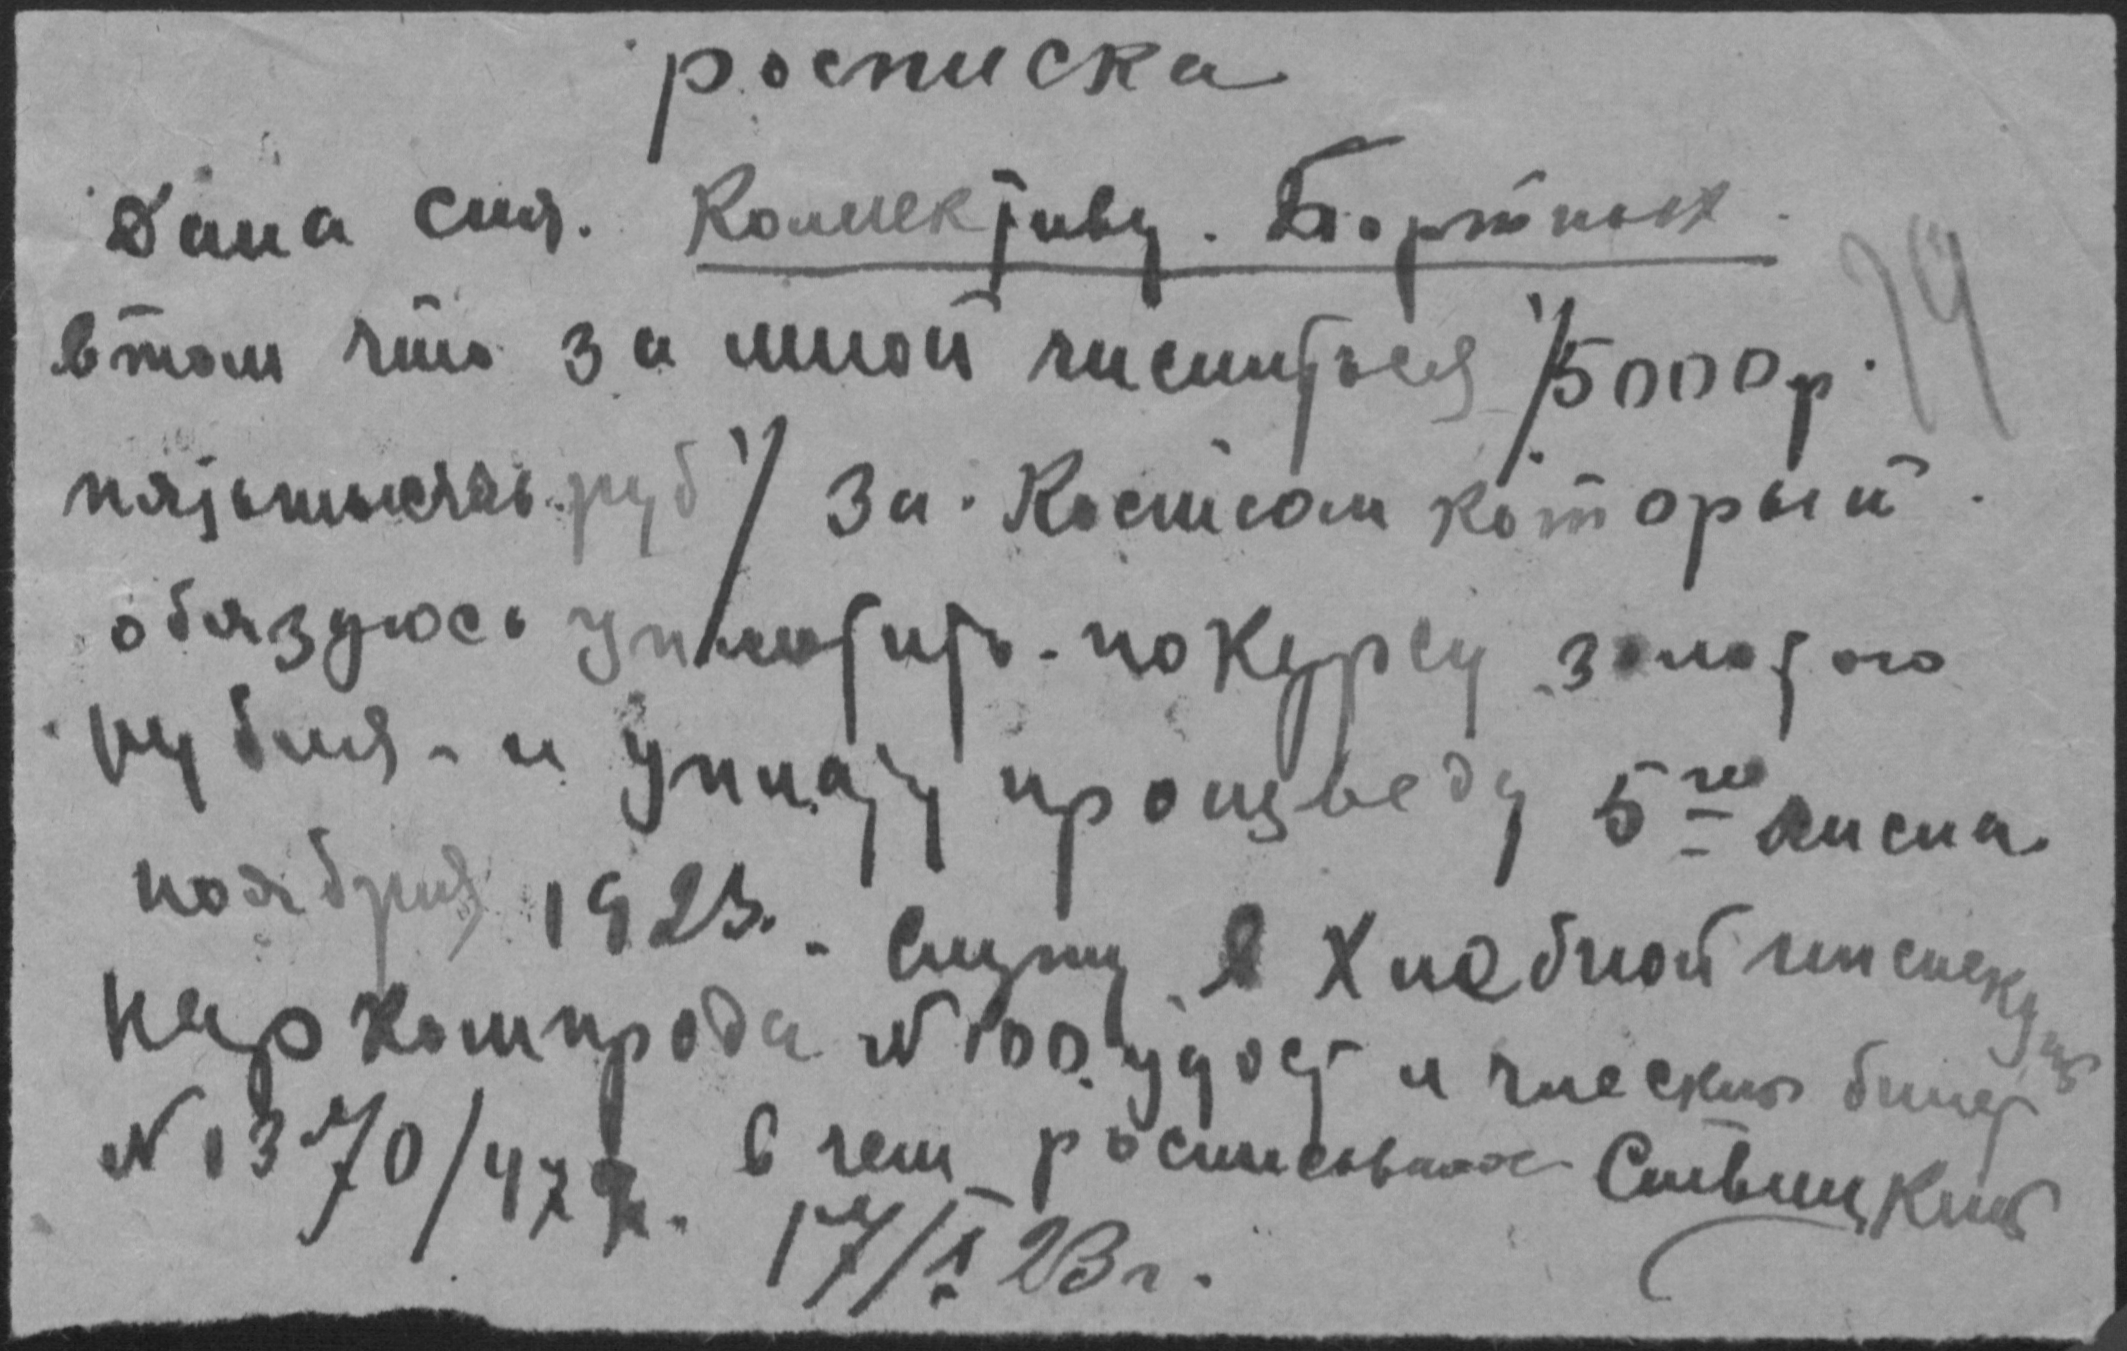 росписка
Дана сия. Коллективу. Портных
втом что за мной числиться "/5000р.
пятьтысячь руб"/ За. Костюм который
обязуюсь уплотить. по курсу золотого
рубля - и уплату произведу 5го числа
ноября 1923. Служу в Хлебной инспекции
Наркомпрода №100. удост и члеский билет
№1370/479. в чем росписоваюсь Ставицкий
17/X 23 г.
79